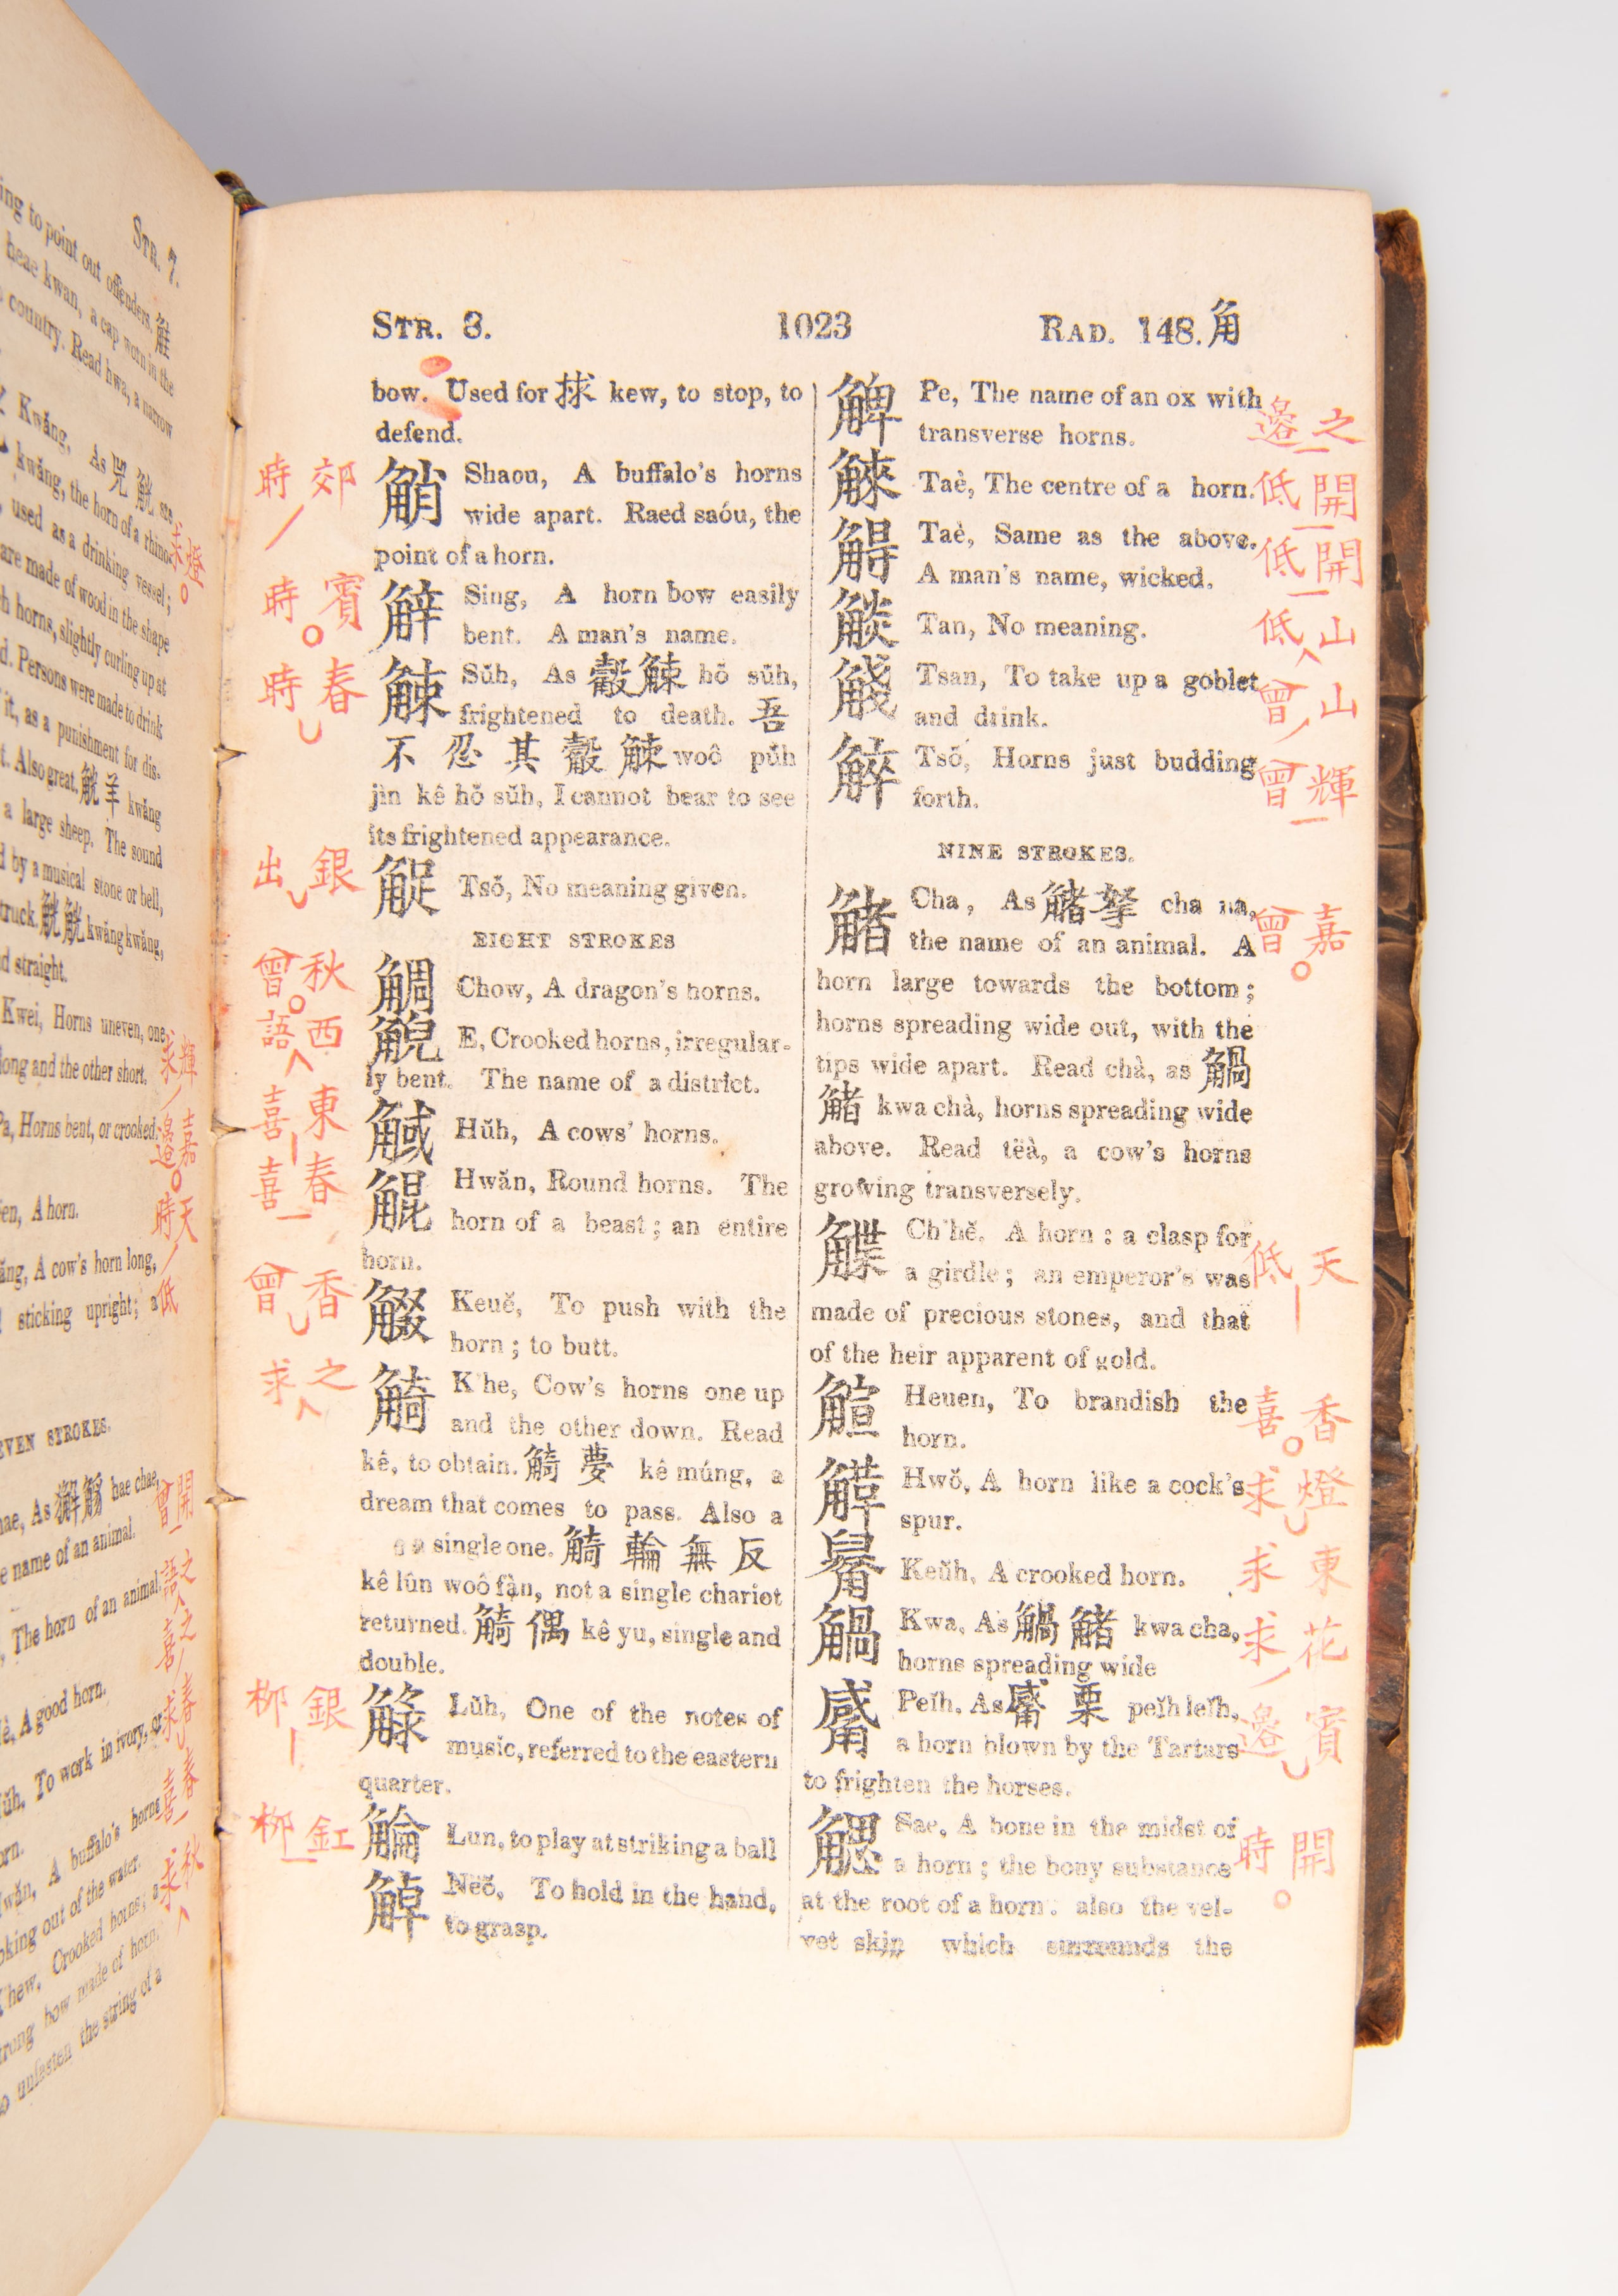 STR. 7.
ing to point out offenders. 觟
heae kwan, a cap worn in the
country. Read hwa, a narrow
Kwăng, As 兕觥 sze
kwăng, the horn of a rhinoc
used as a drinking vessel;
are made of wood in the shape
h horns, slightly curling up at
d. Persons were made to drink
it, as a punishment for dis-
t. Also great. 觥羊 kwăng
a large sheep. The sound
d by a musical stone or bell,
truck. 觥觥 kwăng kwăng,
d straight.
Kwei, Horns uneven, one
long and the other short.
Pa, Horns bent, or crooked.
en, A horn.
ăng, A cow's horn long,
sticking upright; a
EVEN STROKES.
hae, As 獬觹 hae chae,
e name of an animal.
, The horn of an animal.
è, A good horn.
ŭh, To work in ivory, or
orn.
Hwăn, A buffalo's horns
oking out of the water.
K'hew, Crooked horns; a
trong bow made of horn.
o unfasten the string of a
求燈
求輝
邊嘉
時天
低
曾開
語之
喜之
求春
喜春
求秋
STR. 8. 1023 RAD. 148. 角
bow. Used for 捄 kew, to stop, to
defend.
時郊
觘 Shaou, A buffalo's horns
wide apart. Raed saóu, the
point of a horn.
時賓
觪 Sing, A horn bow easily
bent. A man's name.
時春
觫 Sŭh, As 觳觫 hŏ sŭh,
frightened to death. 吾
不忍其觳觫 woô pŭh
jìn kê hŏ sŭh, I cannot bear to see
its frightened appearance.
出銀
Tsŏ, No meaning given.
EIGHT STROKES
曾秋
Chow, A dragon's horns.
語西
觬 E, Crooked horns, irregular-
ly bent. The name of a district.
喜東
Hŭh, A cows' horns.
喜春
Hwăn, Round horns. The
horn of a beast; an entire
horn.
曾香
Keuĕ, To push with the
horn; to butt.
求之
觭 K'he, Cow's horns one up
and the other down. Read
kê, to obtain. 觭夢 kê múng, a
dream that comes to pass. Also a
single one. 觭輪無反
kê lûn woô fàn, not a single chariot
returned. 觭偶 kê yu, single and
double.
柳銀
Lŭh, One of the notes of
music, referred to the eastern
quarter.
柳釭
Lun, to play at striking a ball
Nëŏ, To hold in the hand,
to grasp.
觲 Pe, The name of an ox with
transverse horns.
邊之
Taè, The centre of a horn.
低開
Taè, Same as the above.
A man's name, wicked.
低開
Tan, No meaning.
低山
Tsan, To take up a goblet
and drink.
曾山
Tsŏ, Horns just budding
forth.
曾輝
NINE STROKES.
觰 Cha, As 觰拏 cha na,
the name of an animal. A
曾嘉
horn large towards the bottom;
horns spreading wide out, with the
tips wide apart. Read chà, as 觸
觰 kwa chà, horns spreading wide
above. Read tëà, a cow's horns
growing transversely.
Ch'hĕ. A horn: a clasp for
a girdle; an emperor's was
低天
made of precious stones, and that
of the heir apparent of gold.
Heuen, To brandish the
horn.
喜香
Hwŏ, A horn like a cock's
spur.
求燈
Keŭh, A crooked horn.
求東
Kwa, As 觰 kwa cha,
horns spreading wide
求花
Peĭh, As 栗 peĭh leĭh,
a horn blown by the Tartars
to frighten the horses.
邊賓
䚡 Sae, A bone in the midst of
a horn; the bony substance
時開
at the root of a horn. also the vel-
vet skin which surrounds the